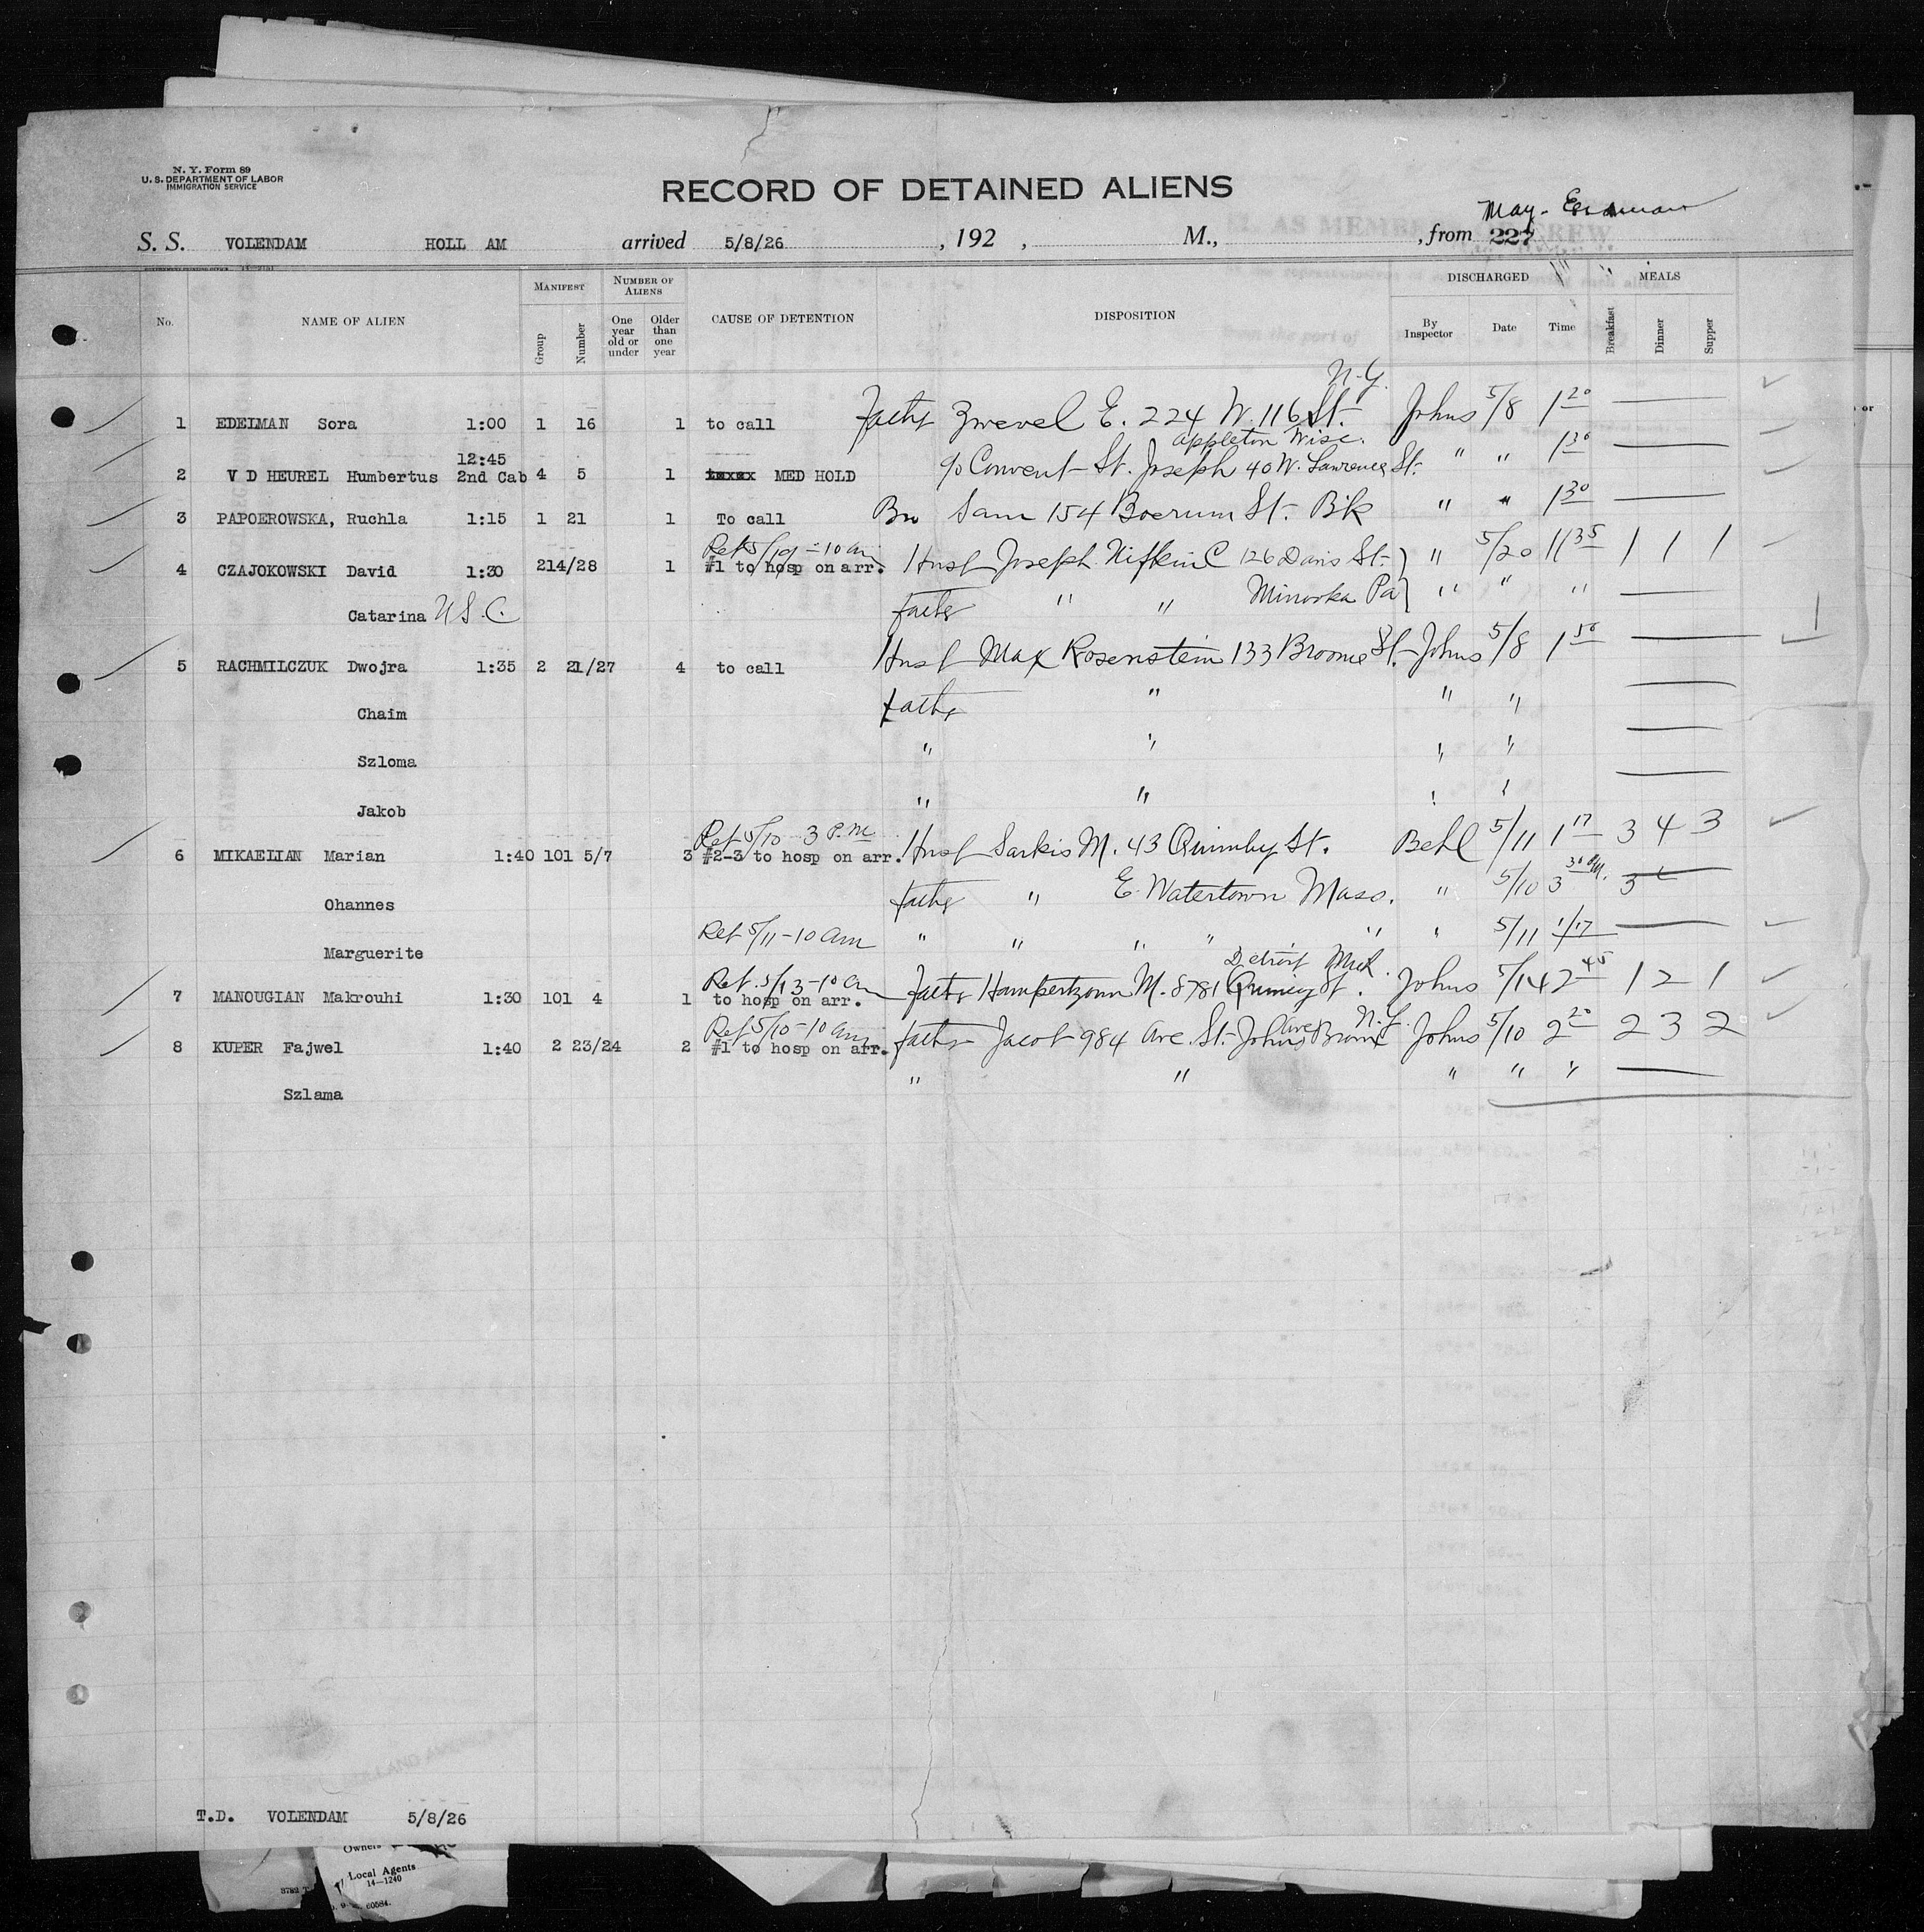 N. Y. Form 89
U. S. DEPARTMENT OF LABOR
IMMIGRATION SERVICE
RECORD OF DETAINED ALIENS
May-
S. S. VOLENDAM HOLL AM arrived 5/8/26, 192 , M., , from 227
No. NAME OF ALIEN MANIFEST Group Number NUMBER OF ALIENS One year old or under Older than one year CAUSE OF DETENTION DISPOSITION DISCHARGED By Inspector Date Time MEALS Breakfast Dinner Supper
N.Y.
1 EDELMAN Sora 1:00 1 16 1 to call Fathr Zwevel E. 224 W. 116 St. Johns 5/8 1 20
12:45 Appleton Wisc.
2 V D HEUREL Humbertus 2nd Cab 4 5 1 MED HOLD c/o Convent St. Joseph 40 W. Lawrence St. " " 1 30
3 PAPOEROWSKA, Ruchla 1:15 1 21 1 To call Bro Sam 154 Boerum St. Bk " " 1 30
Ret 5/19 - 10 am
4 CZAJOKOWSKI David 1:30 214/28 1 #1 to hosp on arr. Husf Joseph C 126 Davis St. " 5/20 11 35 1 1 1
Catarina U S. C. Fathr " " Minooka Pa " " "
5 RACHMILCZUK Dwojra 1:35 2 21/27 4 to call Husf Max Rosenstein 133 Broome St. Johns 5/8 1 50
Chaim Fathr " " "
Szloma " " " "
Jakob " " " "
Ret 5/10 3 P.M
6 MIKAELIAN Marian 1:40 101 5/7 3 #2-3 to hosp on arr. Husf Sarkis M. 43 Quimby St. Behl 5/11 1 17 3 4 3
Ohannes Fathr " E. Watertown Mass. " 5/10 3 30 PM. 3
Marguerite Ret 5/11 - 10 am " " " " " " 5/11 1/17
Ret. 5/13 - 10 am Detroit Mich.
7 MANOUGIAN Makrouhi 1:30 101 4 1 to hosp on arr. Fathr Hampertzoum M. 8781 Quincy St. Johns 5/14 2 45 1 2 1
Ret 5/10 - 10 am Ave N.Y.
8 KUPER Fajwel 1:40 2 23/24 2 #1 to hosp on arr. Fathr Jacob 984 Ave. St. Johns Bronx Johns 5/10 2 20 2 3 2
Szlama " " " " "
T.D. VOLENDAM 5/8/26
Owners
Local Agents
14—1240
60584.